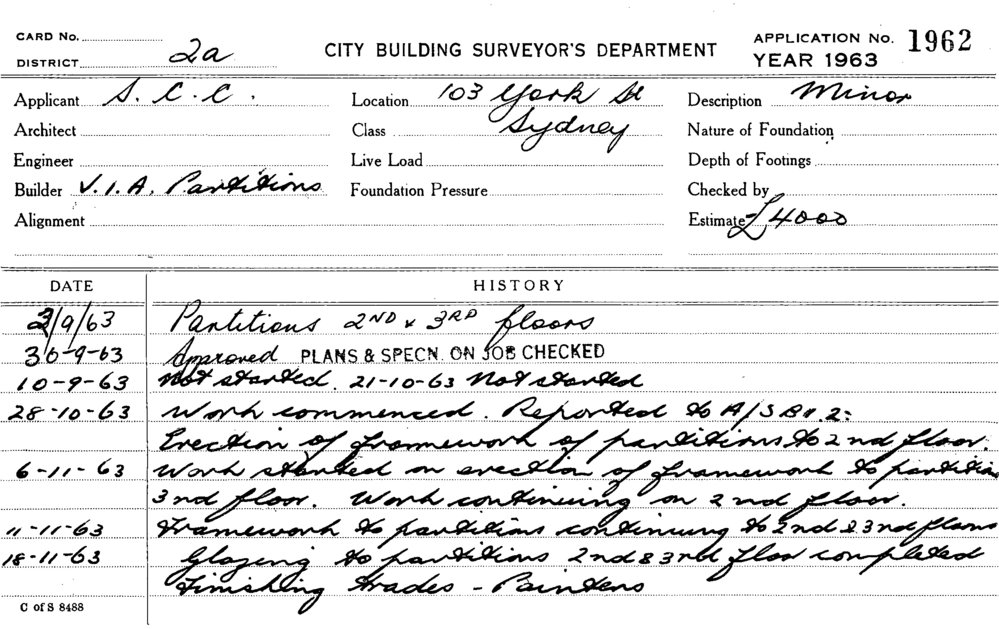 CARD No.
DISTRICT 2a
CITY BUILDING SURVEYOR'S DEPARTMENT
APPLICATION No. 1962
YEAR 1963
Applicant S. C. C. Location 103 York St Description Minor
Architect Class Sydney Nature of Foundation
Engineer Live Load Depth of Footings
Builder V. I. A. Partitions Foundation Pressure Checked by
Alignment Estimate £4000
DATE HISTORY
3/9/63 Partitions 2ND & 3RD floors
30-9-63 Approved PLANS & SPECN. ON JOB CHECKED
10-9-63 Not started. 21-10-63 Not started
28-10-63 Work commenced. Reported to A/S B 2:
Erection of framework of partitions to 2nd floor.
6-11-63 Work started on erection of framework to partition
3rd floor. Work continuing on 2nd floor.
11-11-63 Framework to partitions continuing to 2nd & 3rd floors
18-11-63 Glazing to partitions 2nd & 3rd floor completed
Finishing trades - Painters
C of S 8488